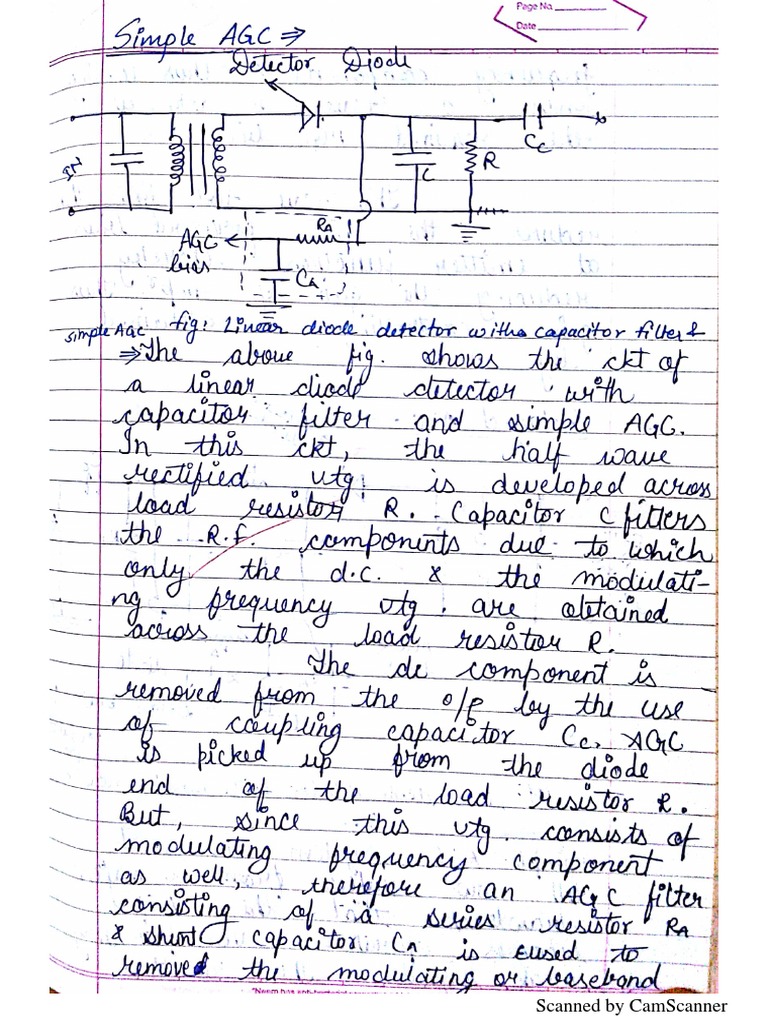 Page No.
Date
Simple AGC ⇒
Detector Diode
IN
C
R
Cc
AGC
bias
RA
CA
simple AGC fig: Linear diode detector with a capacitor filter &
⇒ The above fig. shows the ckt of
a linear diode detector with
capacitor filter and simple AGC.
In this ckt, the half wave
rectified vtg. is developed across
load resistor R. Capacitor C filters
the R.F. components due to which
only the d.c. & the modulati-
ng frequency vtg. are obtained
across the load resistor R.
The dc component is
removed from the o/p by the use
of coupling capacitor Cc. AGC
is picked up from the diode
end of the load resistor R.
But, since this vtg. consists of
modulating frequency component
as well, therefore an AGC filter
consisting of a series resistor RA
& shunt capacitor CA is used to
remove the modulating or baseband
Scanned by CamScanner